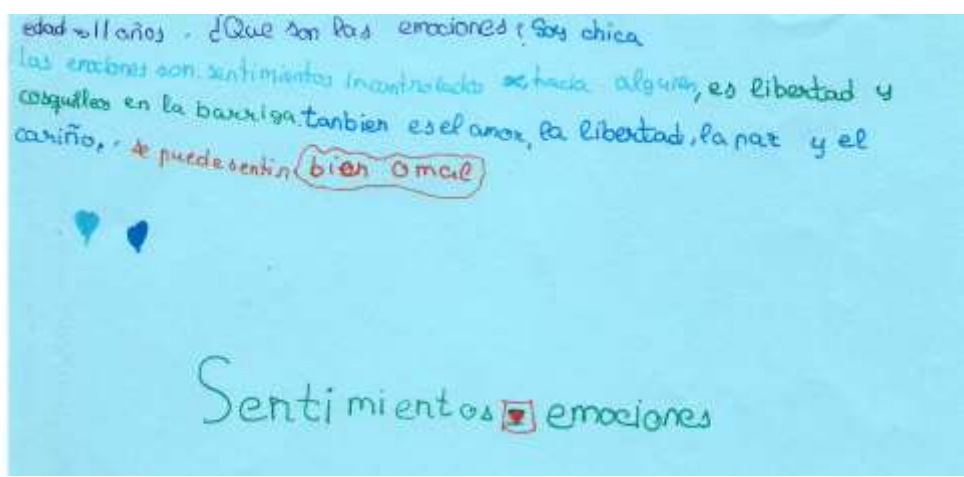 edad 11 años. ¿Que son las emociones? Soy chica
las emociones son sentimientos incontrolados hacia alguien, es libertad y
cosquilleo en la barriga. tanbien es el amor, la libertad, la paz y el
cariño, se puede sentir bien o mal
Sentimientos emociones